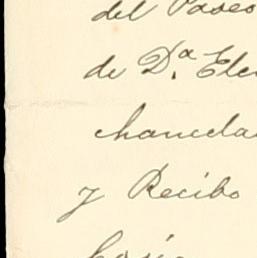 del Paseo
de D.ª Ele
chancela
y Recibo